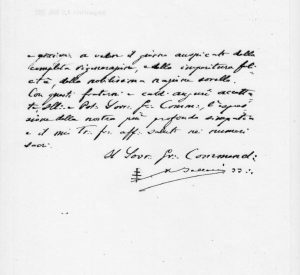 e grazioni a valer il pieno auspicato della
completa rigenerazione, e della imperitura feli
cità della nobilissima nazione sorella.
Con questi fraterni e caldi auguri accetta
te Ill. e Pot. Sovr. Gr. Comm., l'espres
sione della nostra più profonda simpatia
e il mi tr. fr. aff. saluto nei numeri
sacri.
Il Sovr. Gr. Command:
33.:.